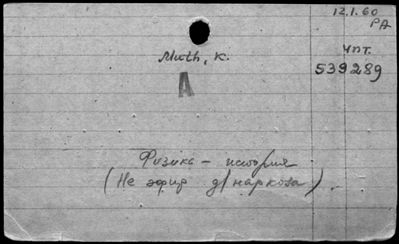 12.1.60
РА
Muth, K.
чпт.
539289
A
Физика – история
(Не эфир д/наркоза).